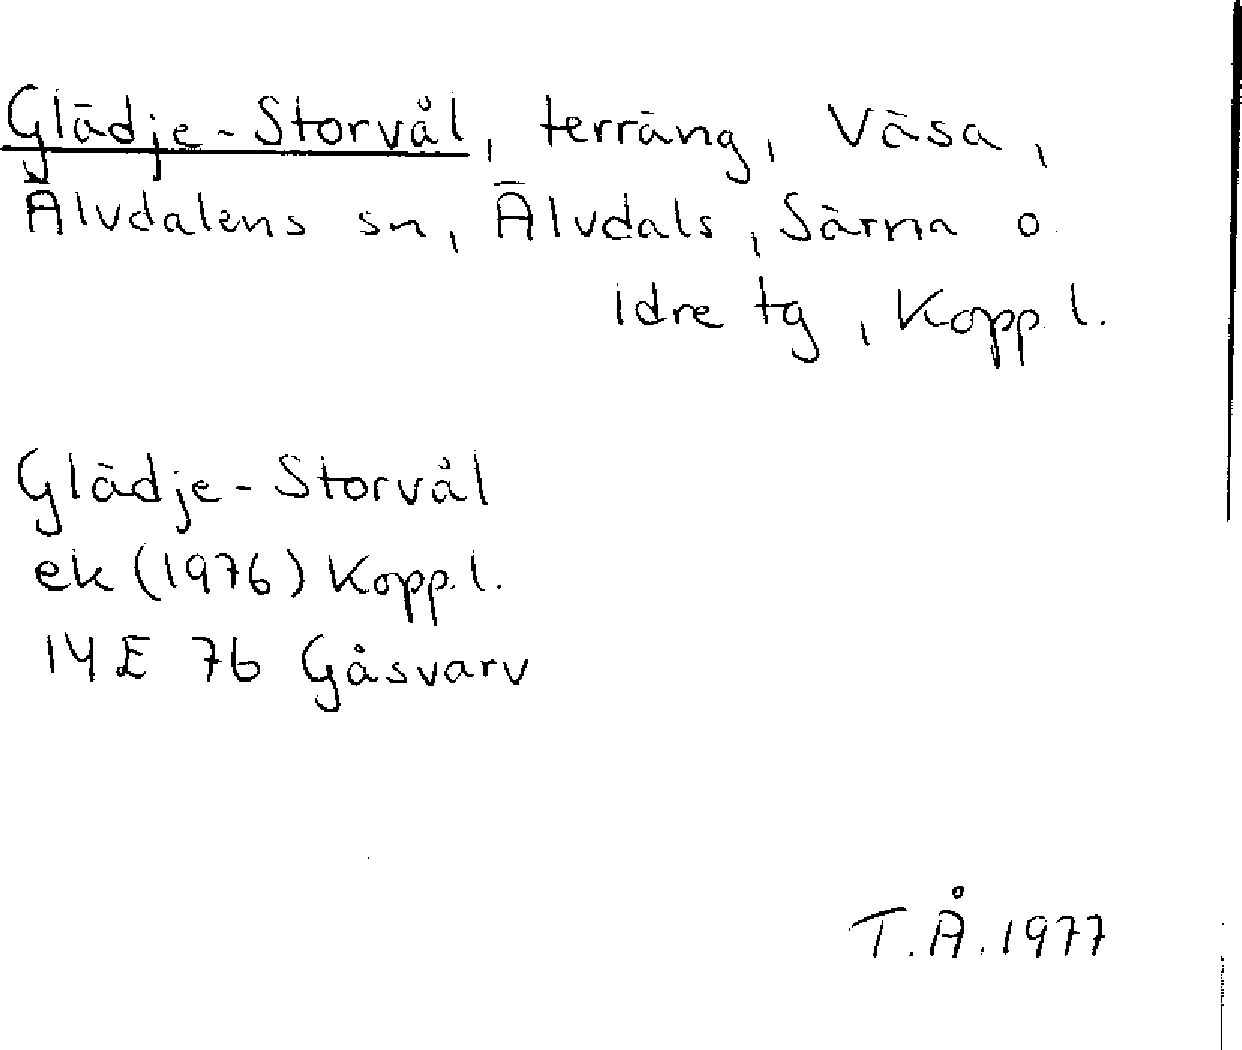 Glädje-Storvål, terräng, Väsa,
Älvdalens sn, Älvdals, Särna o
Idre tg, Kopp l.
Glädje-Storvål
ek (1976) Kopp.l.
14E 7b Gåsvarv
T.Å.1977